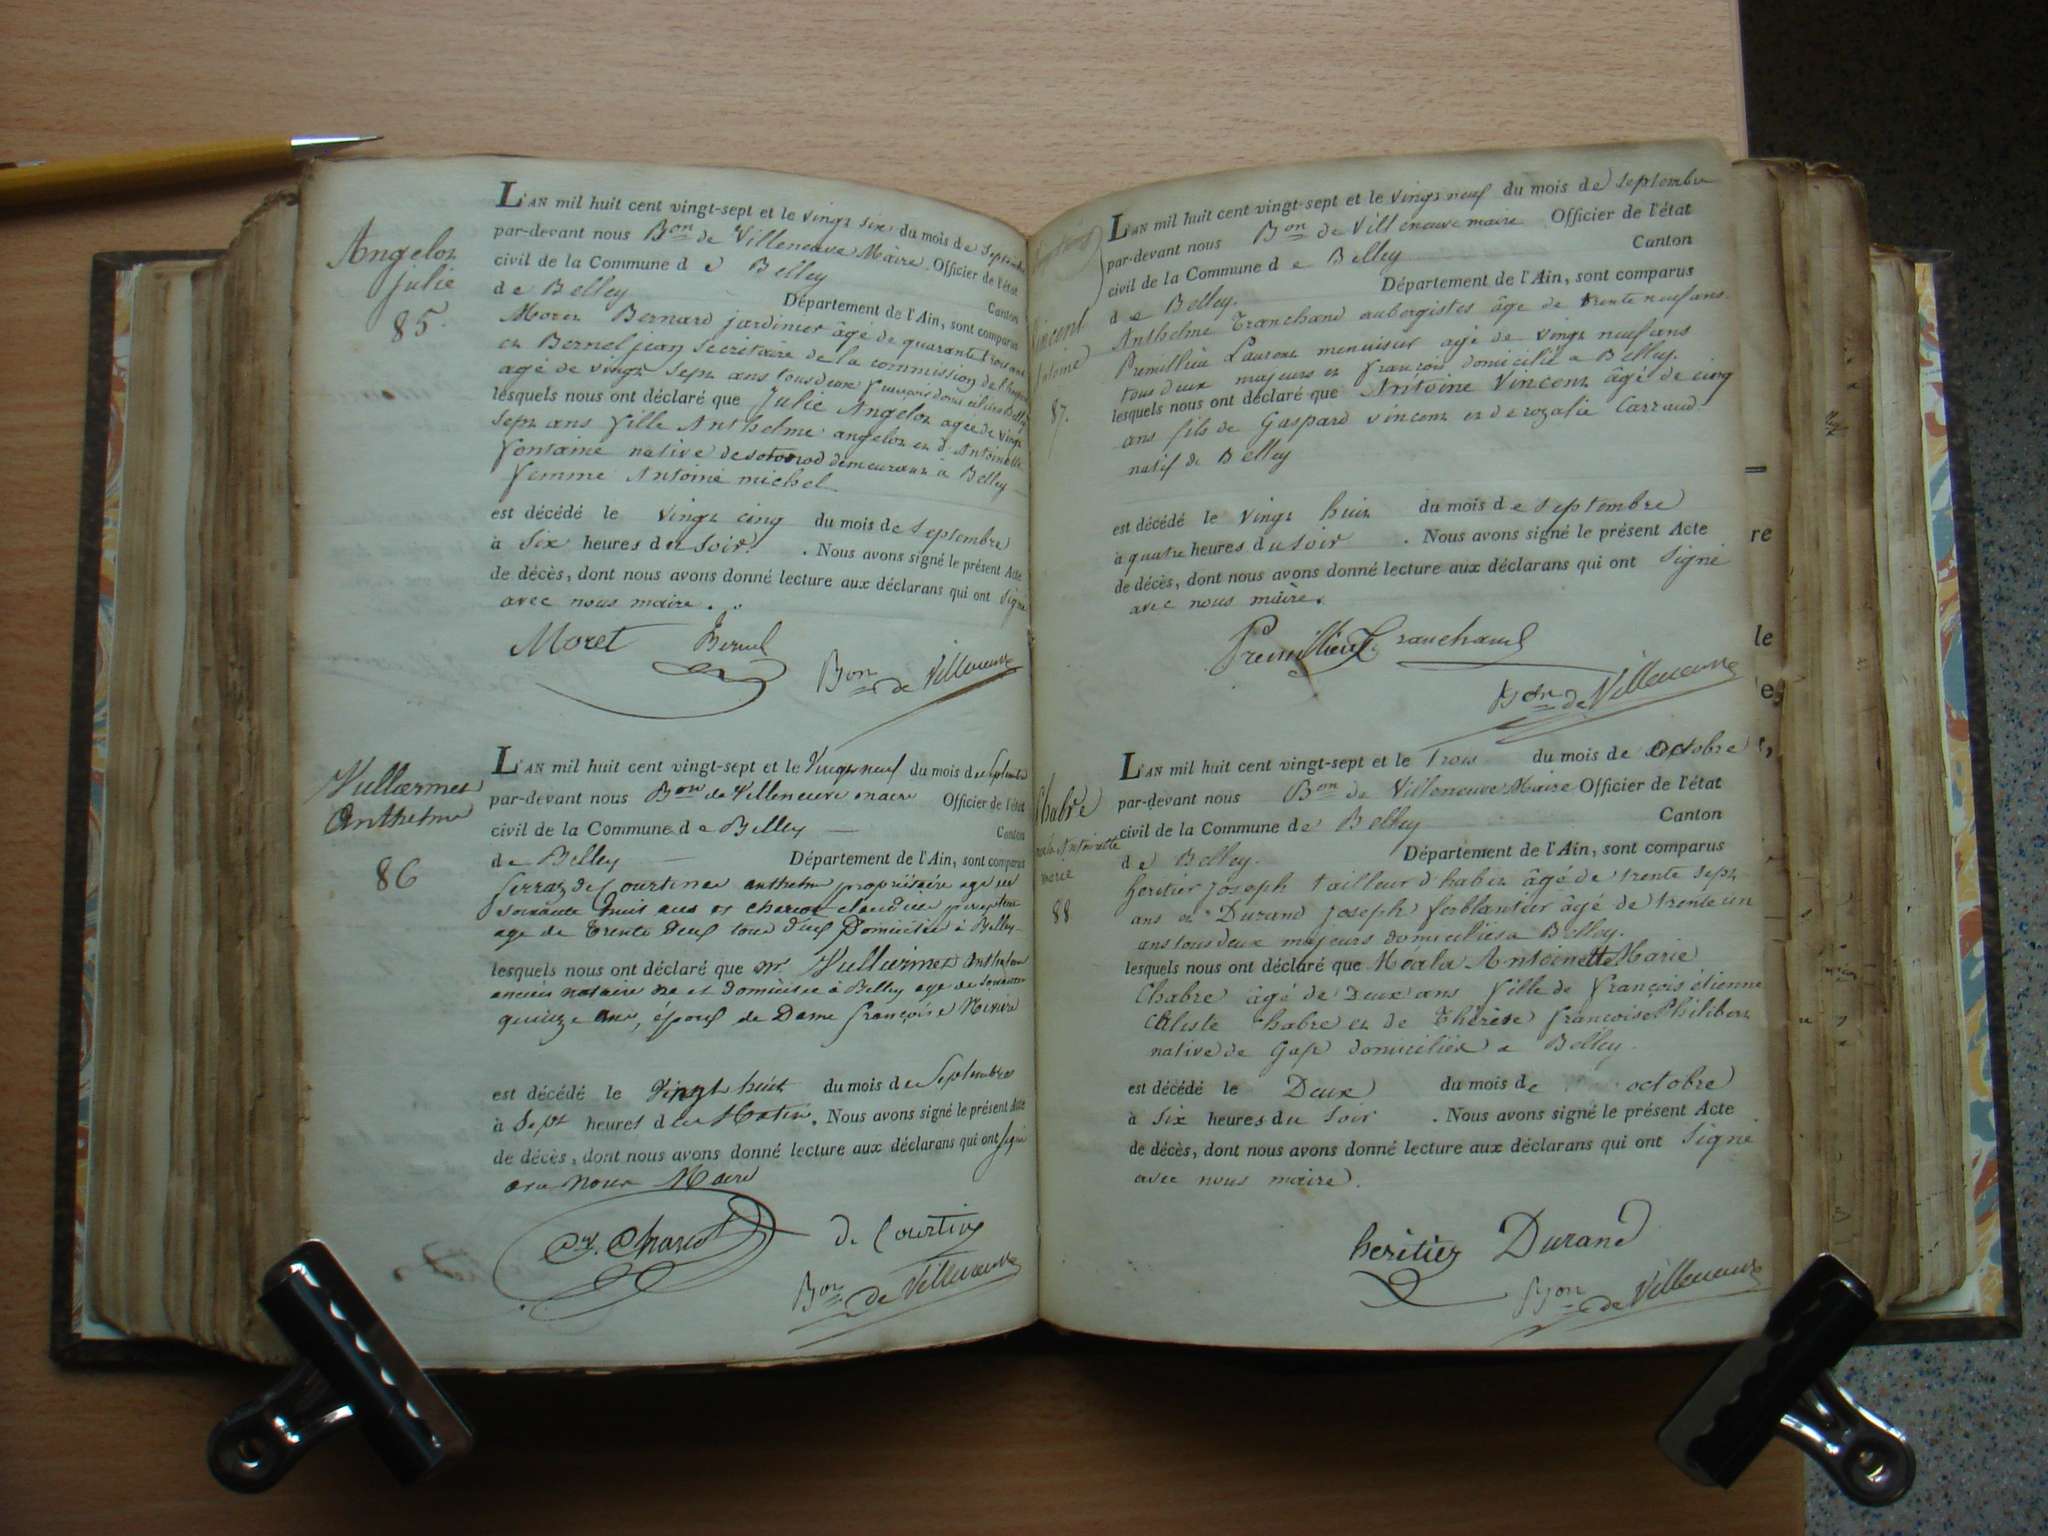 Angelot
julie
85.
L'AN mil huit cent vingt-sept et le vingt six du mois de Septembre
par-devant nous Bon de Villeneuve Maire Officier de l'état
civil de la Commune d e Belley Canton
de Belley Département de l'Ain, sont comparus
Moret Bernard jardinier âgé de quarante trois ans
et Bernel jean Secrétaire de la commission de
agé de vingt Sept ans tous deux français domiciliés a Belley
lesquels nous ont déclaré que Julie Angelot agée de vingt
Sept ans fille Anthelme angelot et d Antoinette
fontaine native de demeurant à Belley
femme Antoine michel
est décédé le vingt cinq du mois de Septembre
à Six heures du Soir. . Nous avons signé le présent Acte
de décès, dont nous avons donné lecture aux déclarans qui ont Signé
avec nous maire.
Moret Bernel
Bon de Villeneuve
Vullermet
Anthelme
86
L'AN mil huit cent vingt-sept et le Vingt neuf du mois de Septembre
par-devant nous Bon de Villeneuve maire Officier de l'état
civil de la Commune d e Belley Canton
de Belley Département de l'Ain, sont comparus
de Courtines anthelme propriétaire age de
soixante huit ans et Chariot claudius
age de trente deux tous deux Domiciliés à Belley
lesquels nous ont déclaré que mr Vullermet Anthelme
ancien notaire né et domicilié à Belley age de soixante
quinze ans, époux de Dame françoise
est décédé le Vingt huit du mois de Septembre
à Sept heures du Matin. Nous avons signé le présent Acte
de décès, dont nous avons donné lecture aux déclarans qui ont signé
avec nous Maire
Chariot de Courtines
Bon de Villeneuve
Vincent
Antoine
87.
L'AN mil huit cent vingt-sept et le vingt neuf du mois de Septembre
par-devant nous Bon de Villeneuve maire Officier de l'état
civil de la Commune d e Belley Canton
d e Belley. Département de l'Ain, sont comparus
Anthelme Tranchand aubergistes âge de trente neuf ans
Premillieu Laurent menuisier agé de vingt neuf ans
tous deux majeurs et français domicilié a Belley.
lesquels nous ont déclaré que Antoine Vincent âgé de cinq
ans fils de Gaspard vincent et de rozalie Carraud.
natif de Belley
est décédé le vingt huit du mois d e septembre
à quatre heures du soir . Nous avons signé le présent Acte
de décès, dont nous avons donné lecture aux déclarans qui ont Signé
avec nous maire.
Premillieu Tranchand
Bon de Villeneuve
Chabre
Antoinette
marie
88
L'AN mil huit cent vingt-sept et le Trois du mois de Octobre
par-devant nous Bon de Villeneuve Maire Officier de l'état
civil de la Commune de Belley Canton
d e Belley. Département de l'Ain, sont comparus
heritier joseph tailleur d habit âgé de trente sept
ans et Durand joseph ferblantier âgé de trente un
ans tous deux majeurs domiciliés a Belley.
lesquels nous ont déclaré que Antoinette Marie
Chabre âgé de Deux ans fille de françois étienne
Chabre et de Thérèse françoise Philibert
native de Gap domiciliée a Belley.
est décédé le Deux du mois de octobre
à Six heures du Soir . Nous avons signé le présent Acte
de décès, dont nous avons donné lecture aux déclarans qui ont Signé
avec nous maire.
heritier Durand
Bon de Villeneuve
re
le